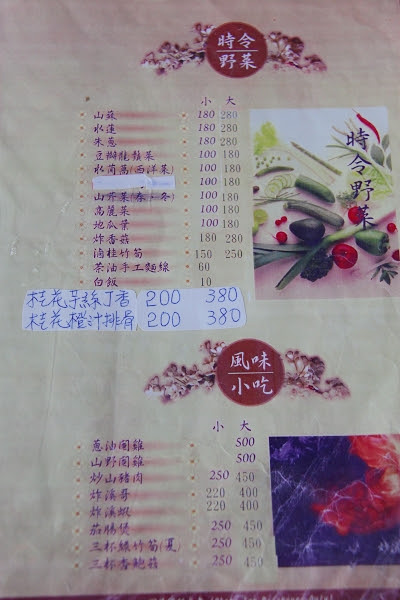 時令
野菜
小 大
山蘇 180 280
水蓮 180 280
朱蔥 180 280
豆瓣龍鬚菜 100 180
水茼萵(西洋菜) 100 180
100 180
山芹菜(春、冬) 100 180
高麗菜 100 180
地瓜葉 100 180
炸香菇 180 280
滷桂竹筍 150 250
茶油手工麵線 60
白飯 10
時令野菜
桂花芋絲丁香 200 380
桂花橙汁排骨 200 380
風味
小吃
小 大
蔥油閹雞 500
山野閹雞 500
炒山豬肉 250 450
炸溪哥 220 400
炸溪蝦 220 400
茄腸煲 250 450
三杯綠竹筍(夏) 250 450
三杯杏鮑菇 250 450